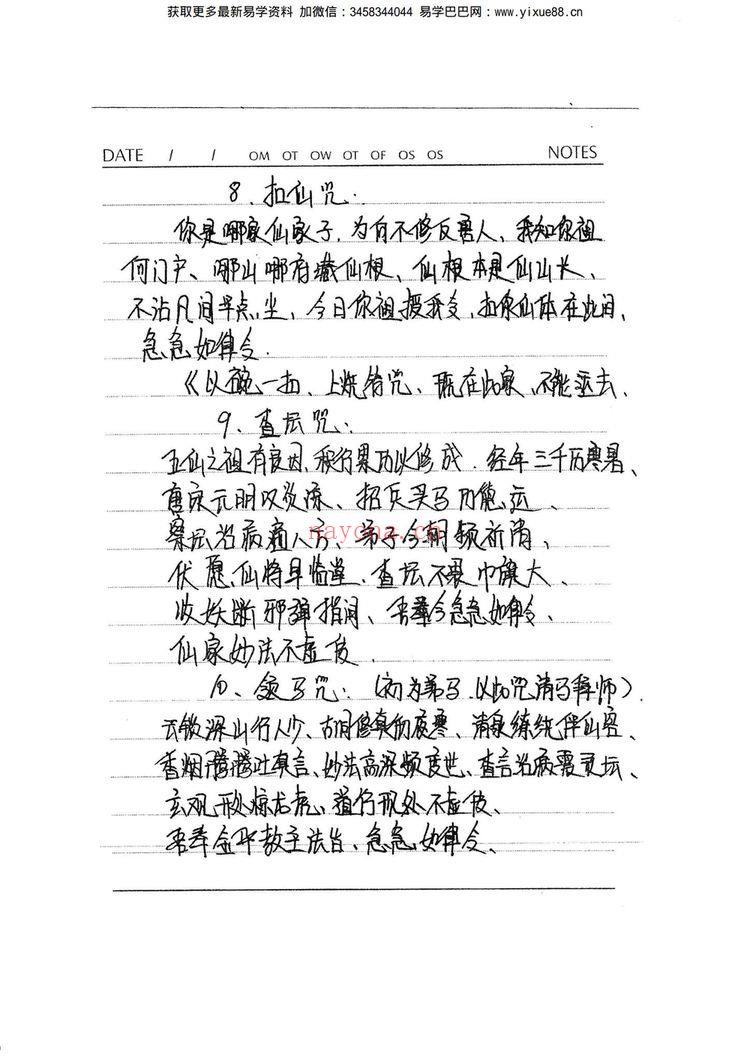 获取更多最新易学资料 加微信：3458344044 易学巴巴网：www.yixue88.cn
DATE / / OM OT OW OT OF OS OS NOTES
8、扣仙咒：
你是哪家仙家子，为何不修反害人、我知你祖
何门户、哪山哪府藏仙根、仙根本是仙山长、
不沾凡间半点尘、今日你祖授我令，扣你仙体在此间、
急急如律令.
《以碗一扣、上烧符咒、现在此家、不能逃去、
9、查坛咒：
五仙之祖有良因、积行累功以修成、经年三千历寒暑、
唐宋元明以资源、招兵买马功能运、
察坛治病通八方、弟子今朝频祈消、
伏愿仙将早临堂、查坛不累巾旗大、
收妖断邪弹指间、吾奉令急急如律令、
仙家妙法不虚传
nayona.cn
10、领马咒：（初为弟马、以此咒请马释师）
云散深山行人少、古洞修真的夜寒、清泉练绕伴仙客、
香烟腾腾吐真言、妙法高深频度世、查言治病震灵坛、
玄观形处惊龙虎、道行现处不虚传、
吾奉金华教主法旨、急急如律令、